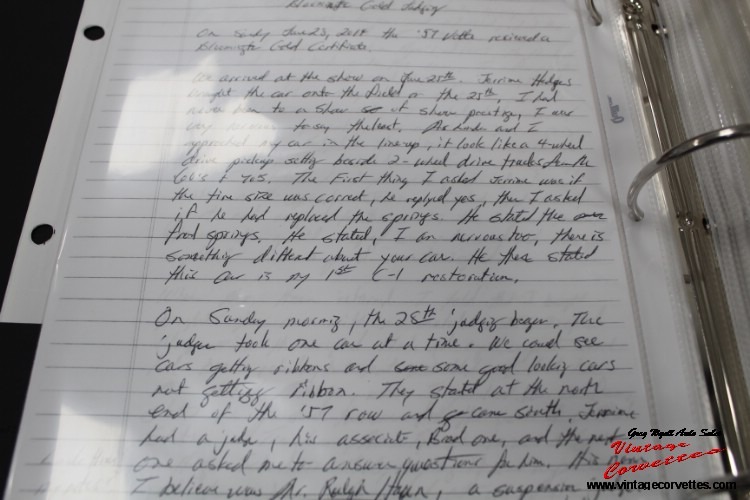 Bloomington Gold Judging
On Sunday June 25, the '57 Vette received a
Bloomington Gold Certificate.
We arrived at the show on June 25th. Jerrime Hodges
brought the car onto the on the 25th, I had
never been to a show of show prestige, I was
very to say the least. As and I
approached my car in the line up, it look like a 4-wheel
drive pickup setting beside 2-wheel drive trucks from the
60's & 70's. The First thing I asked Jerrime was if
the tire size was correct, he replyed yes, then I asked
if he had replaced the springs. He stated the
front springs. He stated, I am nervous too, there is
something different about your car. He then stated
this car is my 1st C-1 restoration.
On Sunday morning, the 25th judging began. The
judges took one car at a time. We could see
cars getting ribbons and some good looking cars
not getting Ribbon. They stated at the north
end of the '57 row and came south, Jerrime
had a judge, his associate, Brad one, and the next
one asked me to answer questions for him. This
I believe was Mr. Ralph, a suspension
Greg Wyatt Auto Sales
Vintage
Corvettes
www.vintagecorvettes.com